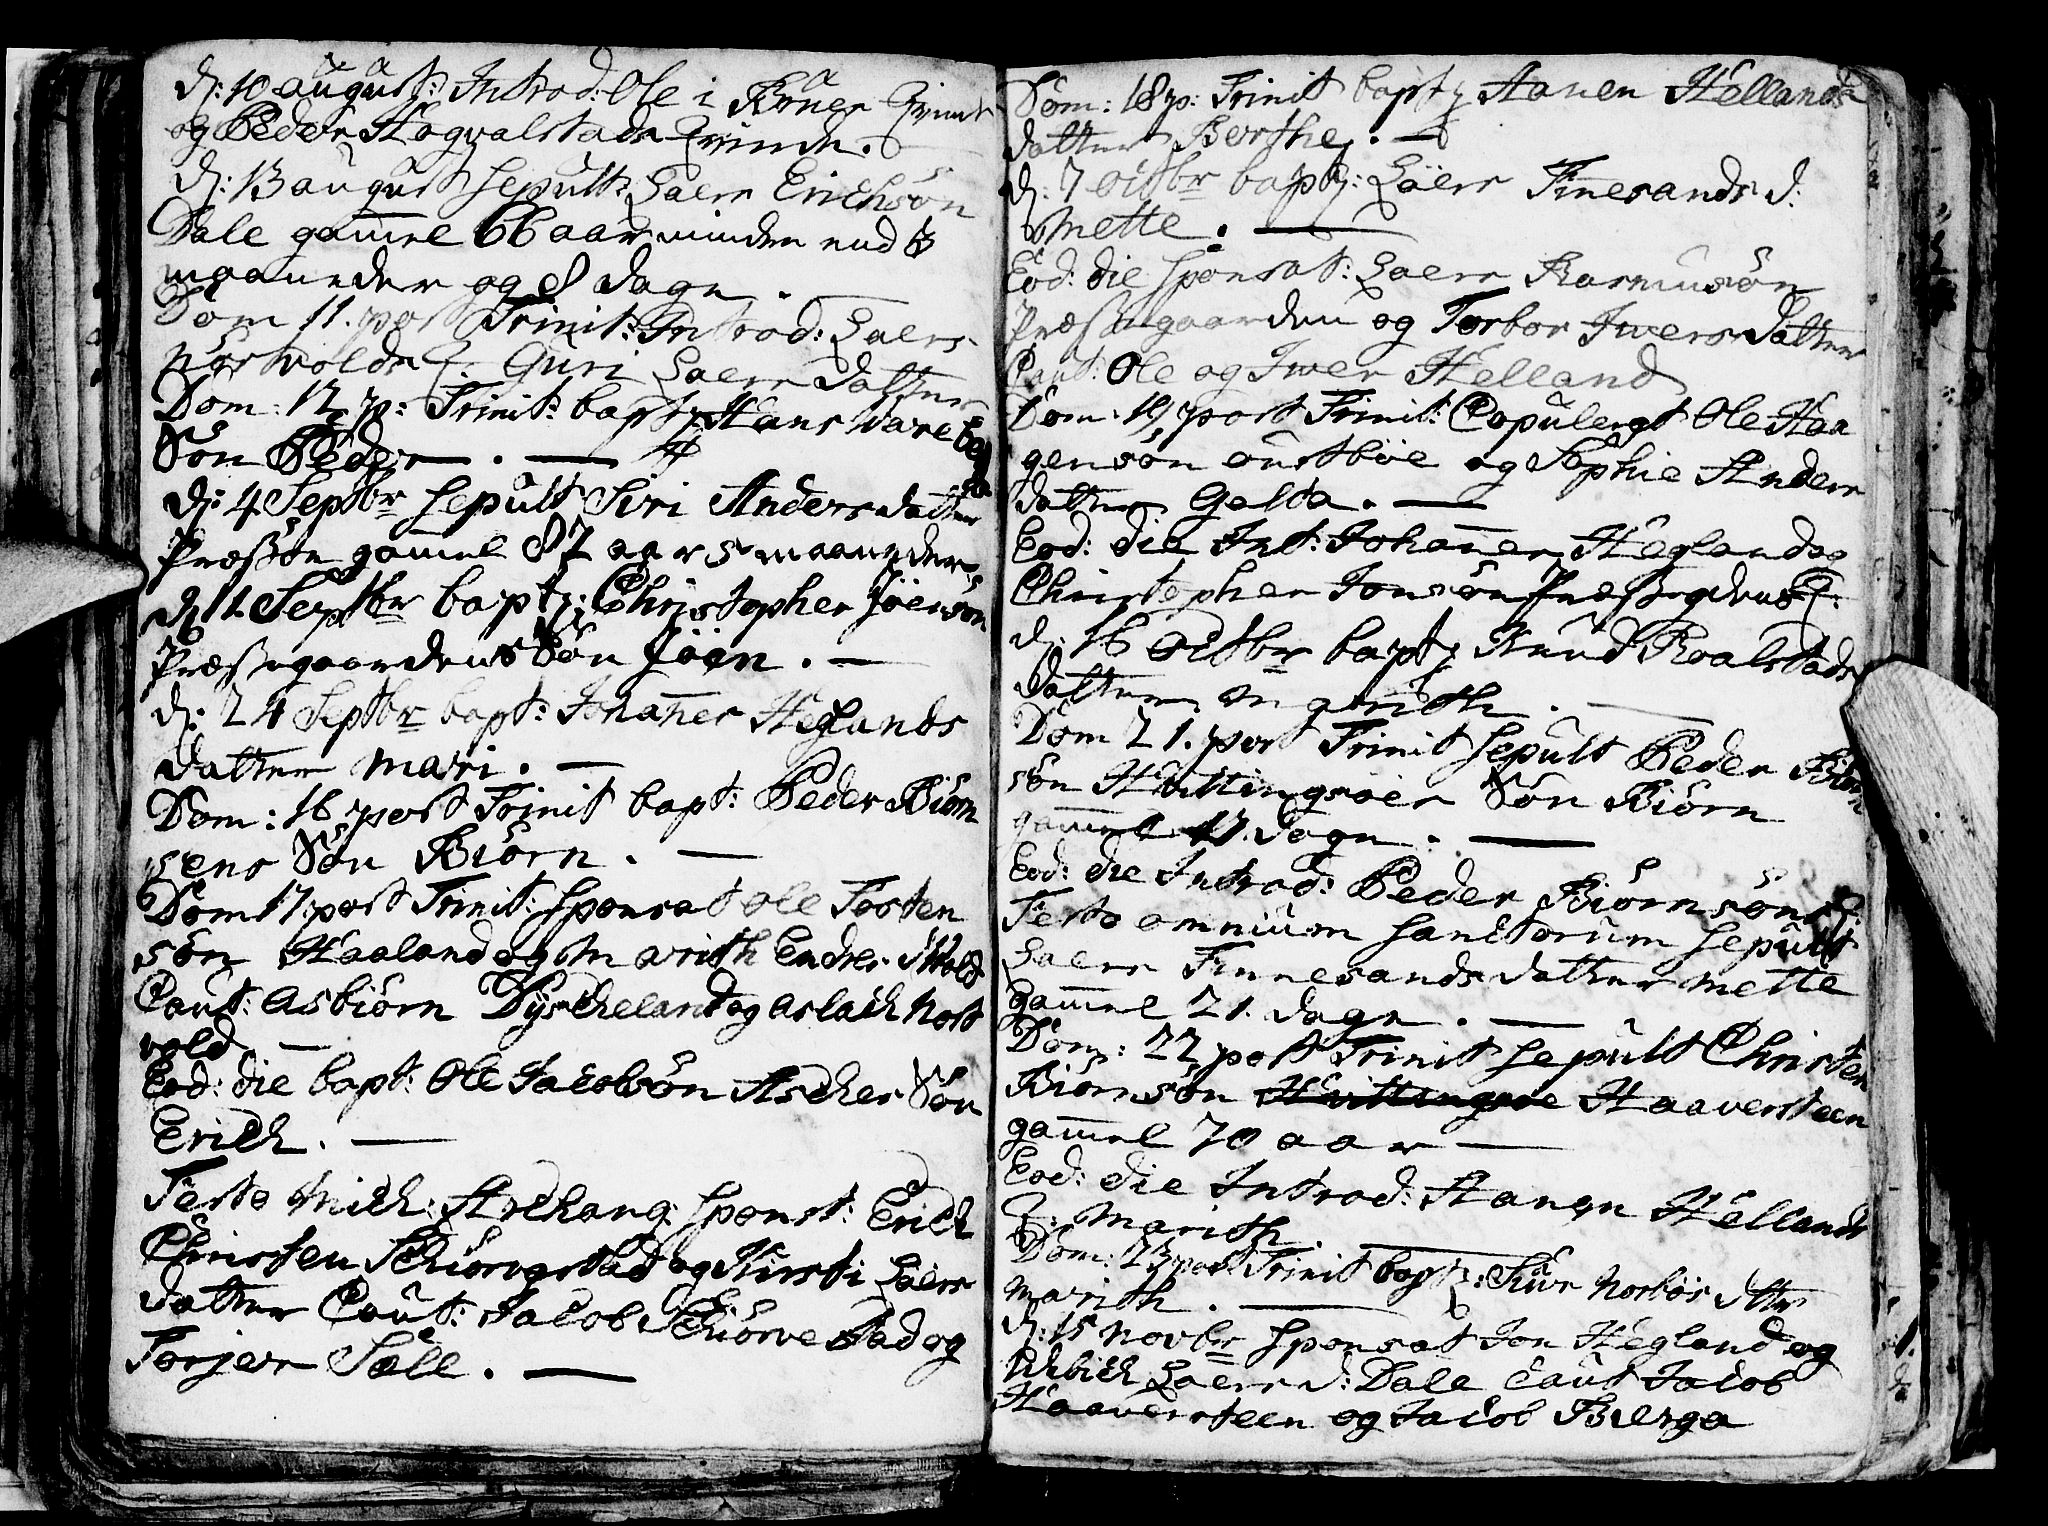 d: 10 august: Introd: Ole i Kroner Qvinde
og Peder Hogvalstads Qvinde.
d: 13 august sepult: Laers Erichsøn
Dale gam̄el 66 aar minden end 3
maaneder og 8 dage.
Dom 11. post Trinit: Introd: Laers
Nortvolds Q. Guri Laers datter
Dom: 12 p: Trinit: bapt: Hans Vareberg
Søn Peder. —
d: 4 Septbr sepult Siri Anders datter
Præsten gam̄el 87 aar 5 maaneder
d: 12 Septbr bapt: Christopher Joensøn
Præstegaardens Søn Joen. —
d: 24 Septbr bapt: Johan̄es Heglands
datter Mari. —
Dom: 16 post Trinit bapt: Peder Biørn
sens Søn Biørn. —
Dom 17 post Trinit: sponsat Ole Tosten
søn Haaland og Marith Endres d Wold
Caut: Asbiørn Dÿscheland og Aslach Nort
vold —
Eod: die bapt: Ole Jacobsøn Ascher Søn
Erich. —
Festo Mich: Archang: sponst: Erich
Christen Schiorvestad og Kirsti Laers
datter Caut: Jacob Schiorvestad og
Torjer Sæle. —
Dom: 18 p: Trinit bapt: Aanen Hellands
datter Berthe. —
d: 7 Octbr bapt: Laers Finesands d:
Mette. —
Eod: die sponsat: Laers Rasmusøn
Præstegaarden og Torbor Iversdatter
Caut: Ole og Iver Helland
Dom: 19 post Trinit: Copulergt Ole Haa
gensøn Oustbøe og Sophie Anders
datter Galta. —
Eod: die Int: Johan̄es Heglands og
Christopher Jonsøn Præstegdens Q:
d: 16 Octbr bapt: Knud Roalstads
datter Ingrith. —
Dom 21. post Trinit sepult Peder Biørn
søn Huittingsøes Søn Biørn
gam̄el 17 dage. —
Eod: die Introd: Peder Biørnsøns Q:
Festo omnium sanctorum sepult
Laers Finnesands datter Mette
gam̄el 21 dage. —
Dom: 22 post Trinit sepult Christen
Biørnsøn Huittingsøe Haaversteen
gam̄el 70 aar —
Eod: die Introd: Aanen Hellands
Q: Marith. —
Dom: 23 post Trinit bapt: Siur Norbøs dtter
Marith. —
d: 15 Novbr sponsat Jon Hegland og
Laers d: Dale Caut Jacob
Haaversteen og Jacob Berge